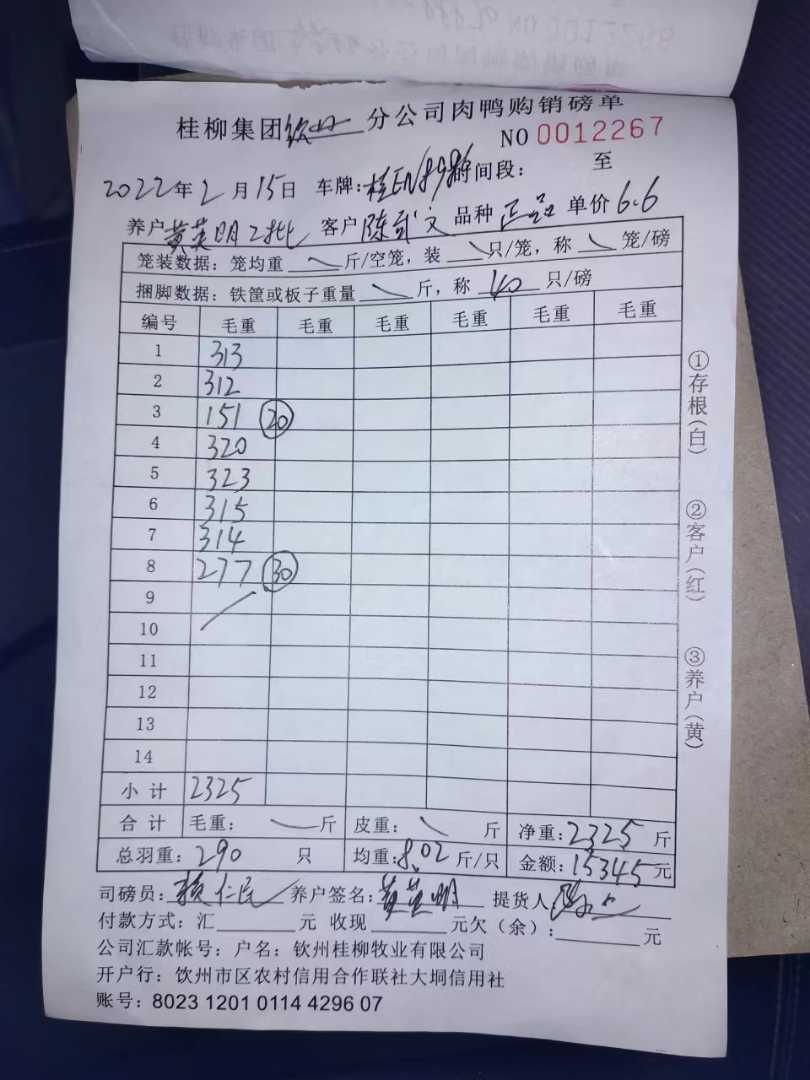 桂柳集团钦州分公司肉鸭购销磅单
NO 0012267
2022年2月15日 车牌:桂EN8986 时间段: 至
养户黄英明2批 客户陈武文 品种正品 单价6.6
笼装数据:笼均重 斤/空笼,装 只/笼,称 笼/磅
捆脚数据:铁筐或板子重量 斤,称 40 只/磅
编号 毛重 毛重 毛重 毛重 毛重 毛重
1 313
2 312
3 151 20
4 320
5 323
6 315
7 314
8 277 30
9
10
11
12
13
14
小计 2325
合计 毛重: 斤 皮重: 斤 净重:2325斤
总羽重:290 只 均重:8.02斤/只 金额:15345元
司磅员:赖仁民 养户签名:黄英明 提货人
付款方式:汇 元 收现 元欠(余): 元
公司汇款帐号:户名:钦州桂柳牧业有限公司
开户行:饮州市区农村信用合作联社大垌信用社
账号:8023 1201 0114 4296 07
①存根(白)
②客户(红)
③养户(黄)